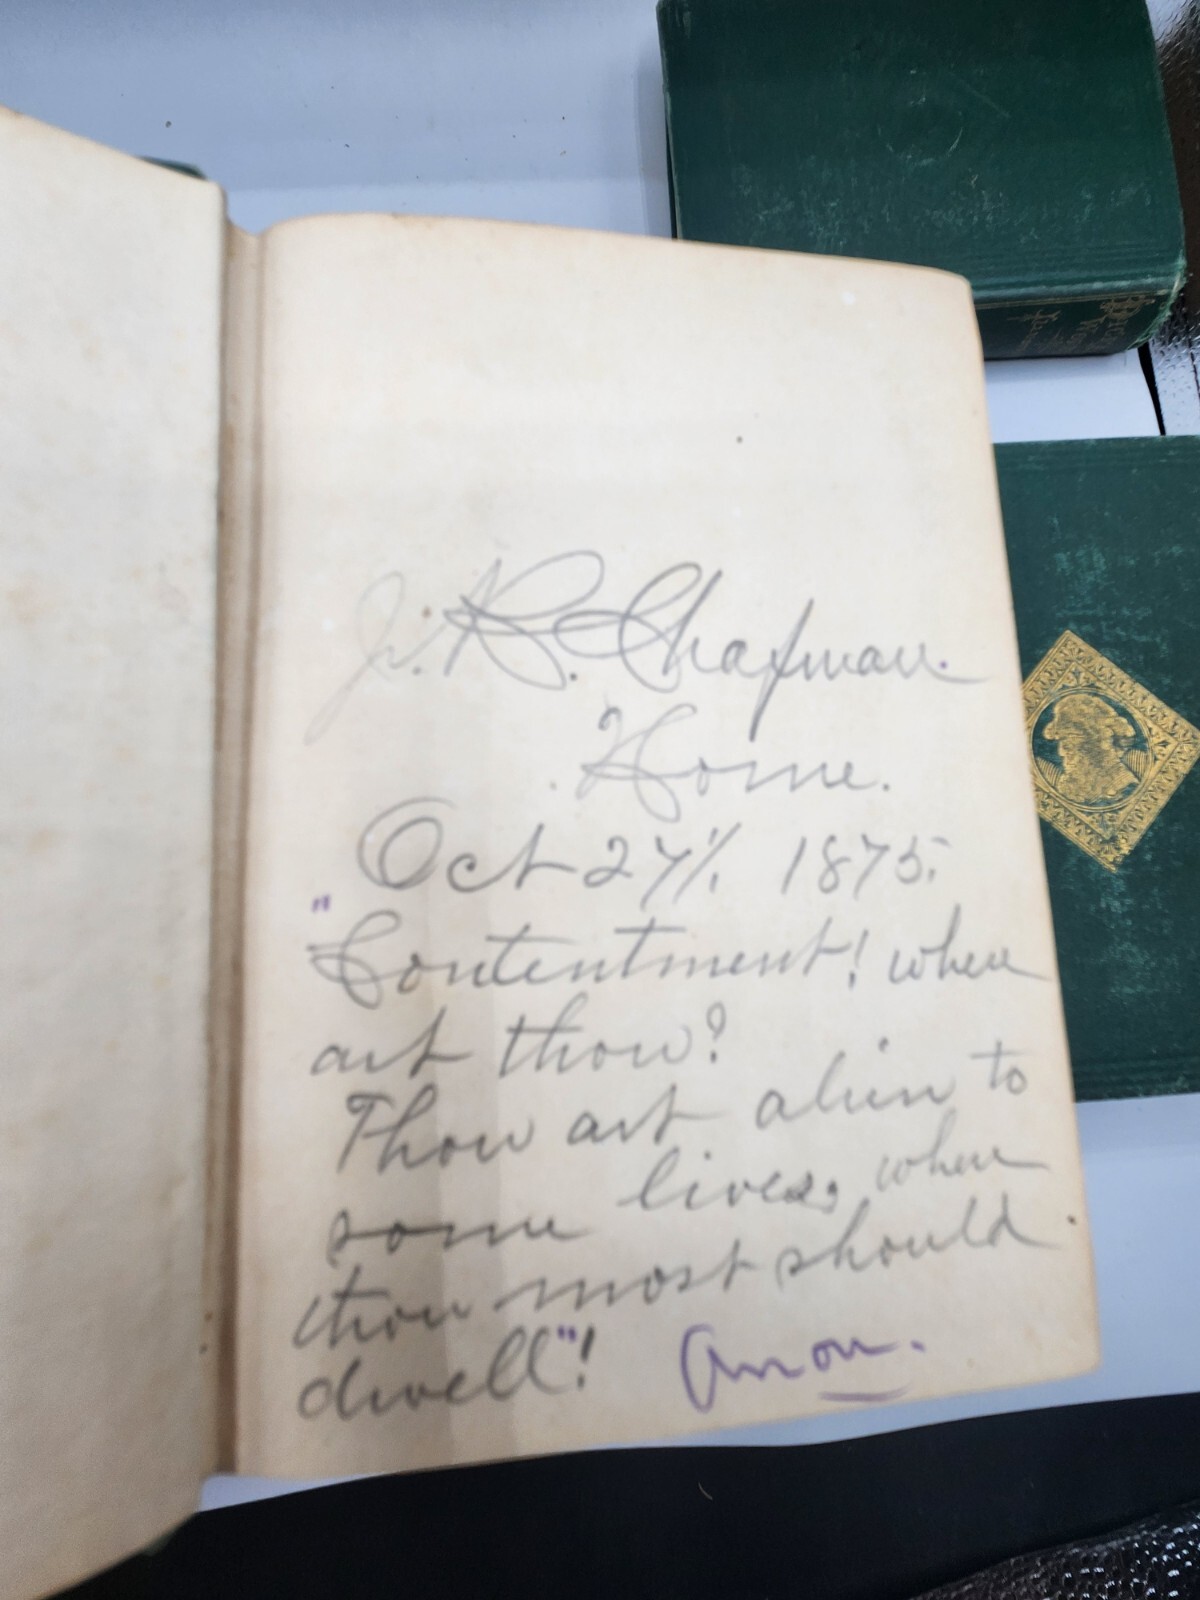 J. R. Chapman.
Home.
Oct 27/. 1875.
"Contentment! where
art thou?
Thou art alien to
some lives, where
thou most should
dwell"! Anon.